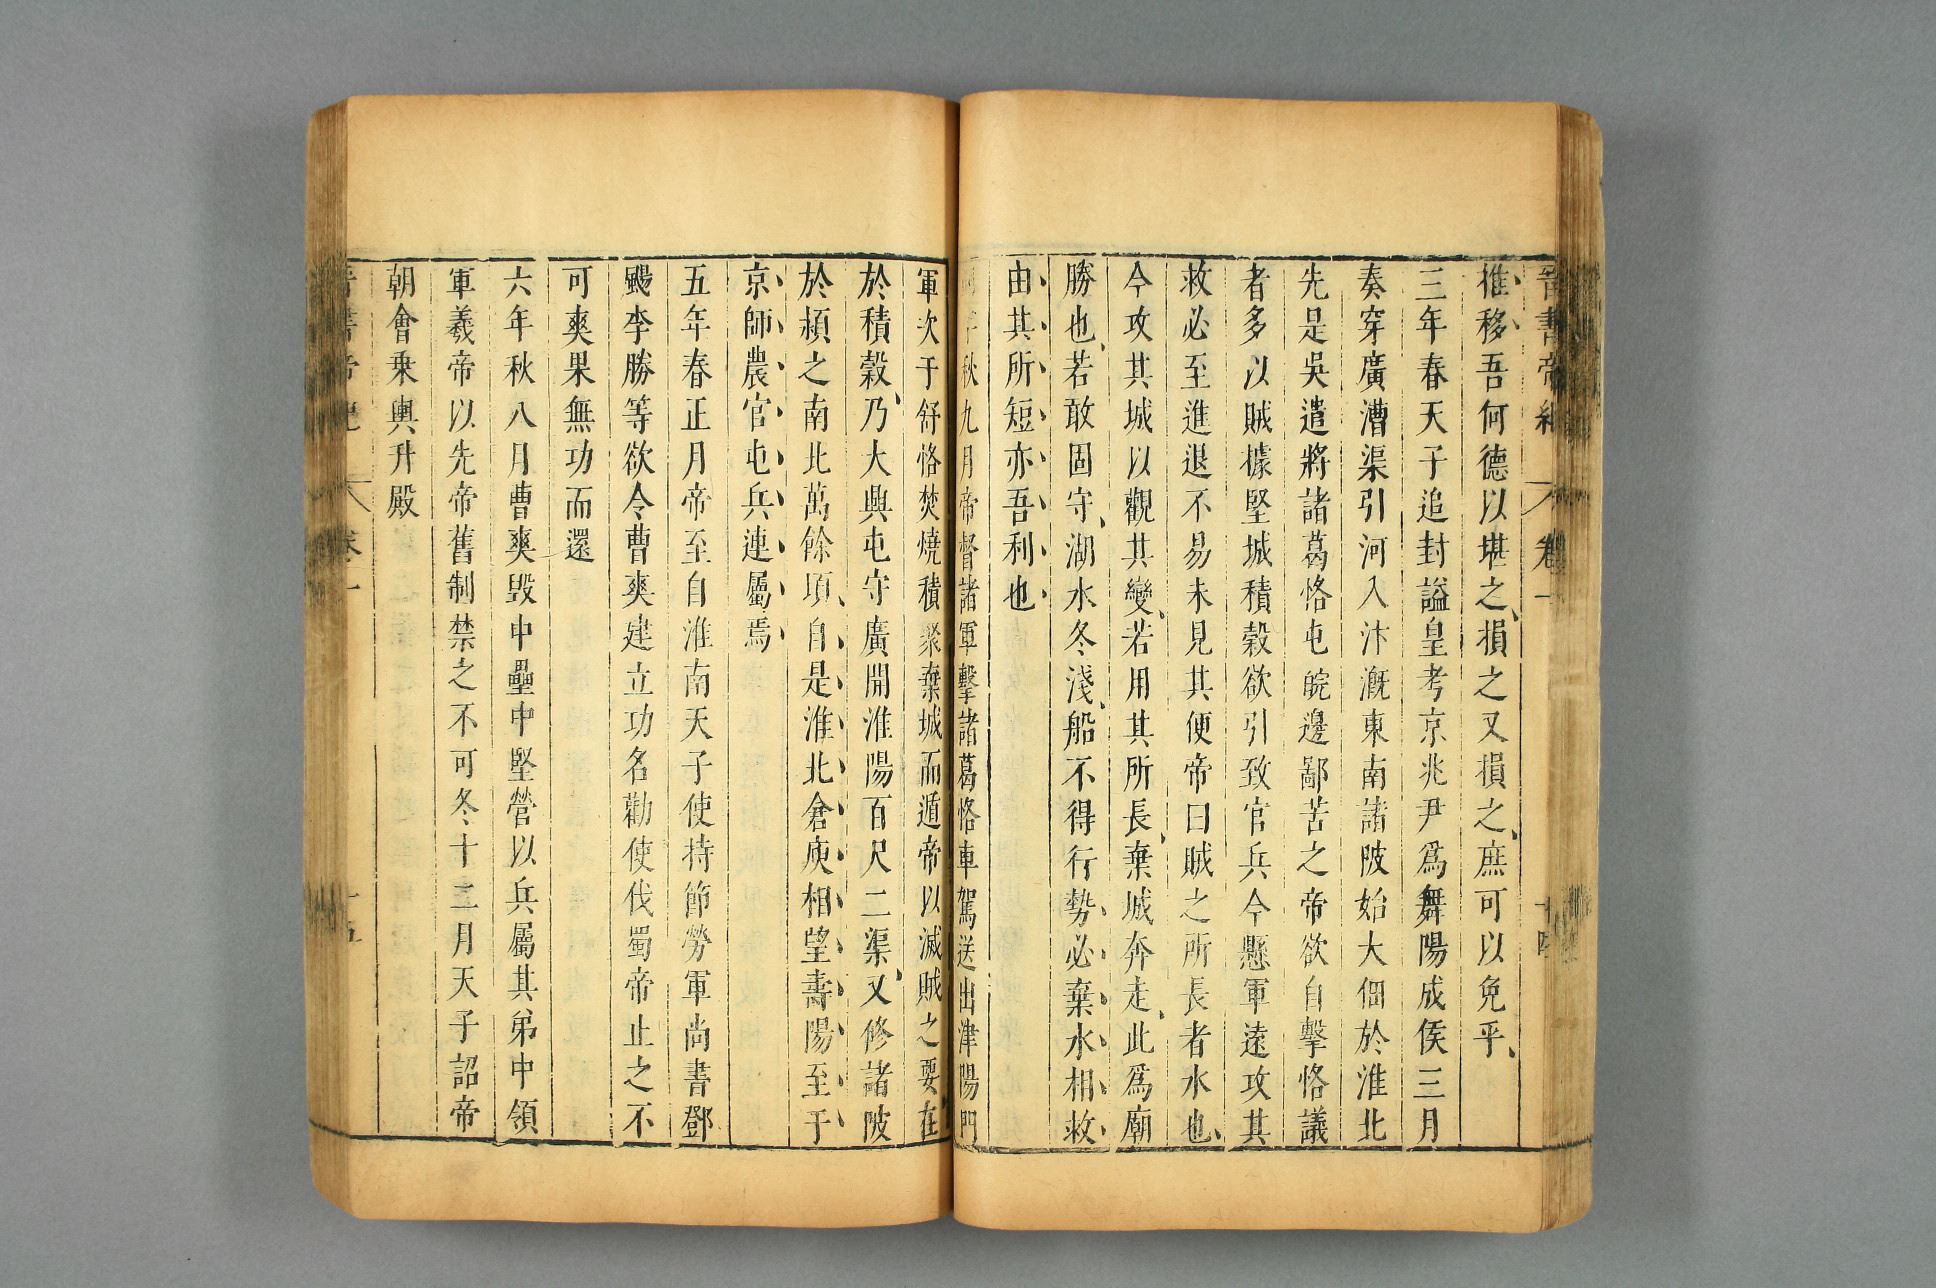 晉書帝紀 卷一 十四
推移吾何德以堪之損之又損之庶可以免乎
三年春天子追封謚皇考京兆尹爲舞陽成侯三月
奏穿廣漕渠引河入汴漑東南諸陂始大佃於淮北
先是吳遣將諸葛恪屯皖邊鄙苦之帝欲自擊恪議
者多以賊據堅城積穀欲引致官兵今懸軍遠攻其
救必至進退不易未見其便帝曰賊之所長者水也
今攻其城以觀其變若用其所長棄城奔走此爲廟
勝也若敢固守湖水冬淺船不得行勢必棄水相救
由其所短亦吾利也
年秋九月帝督諸軍擊諸葛恪車駕送出津陽門
軍次于舒恪焚燒積聚棄城而遁帝以滅賊之要在
於積穀乃大興屯守廣開淮陽百尺二渠又修諸陂
於潁之南北萬餘項自是淮北倉庾相望壽陽至于
京師農官屯兵連屬焉
五年春正月帝至自淮南天子使持節勞軍尚書鄧
颺李勝等欲令曹爽建立功名勸使伐蜀帝止之不
可爽果無功而還
六年秋八月曹爽毀中壘中堅營以兵屬其弟中領
軍羲帝以先帝舊制禁之不可冬十二月天子詔帝
朝會乗輿升殿
晉書帝紀 卷一 十五